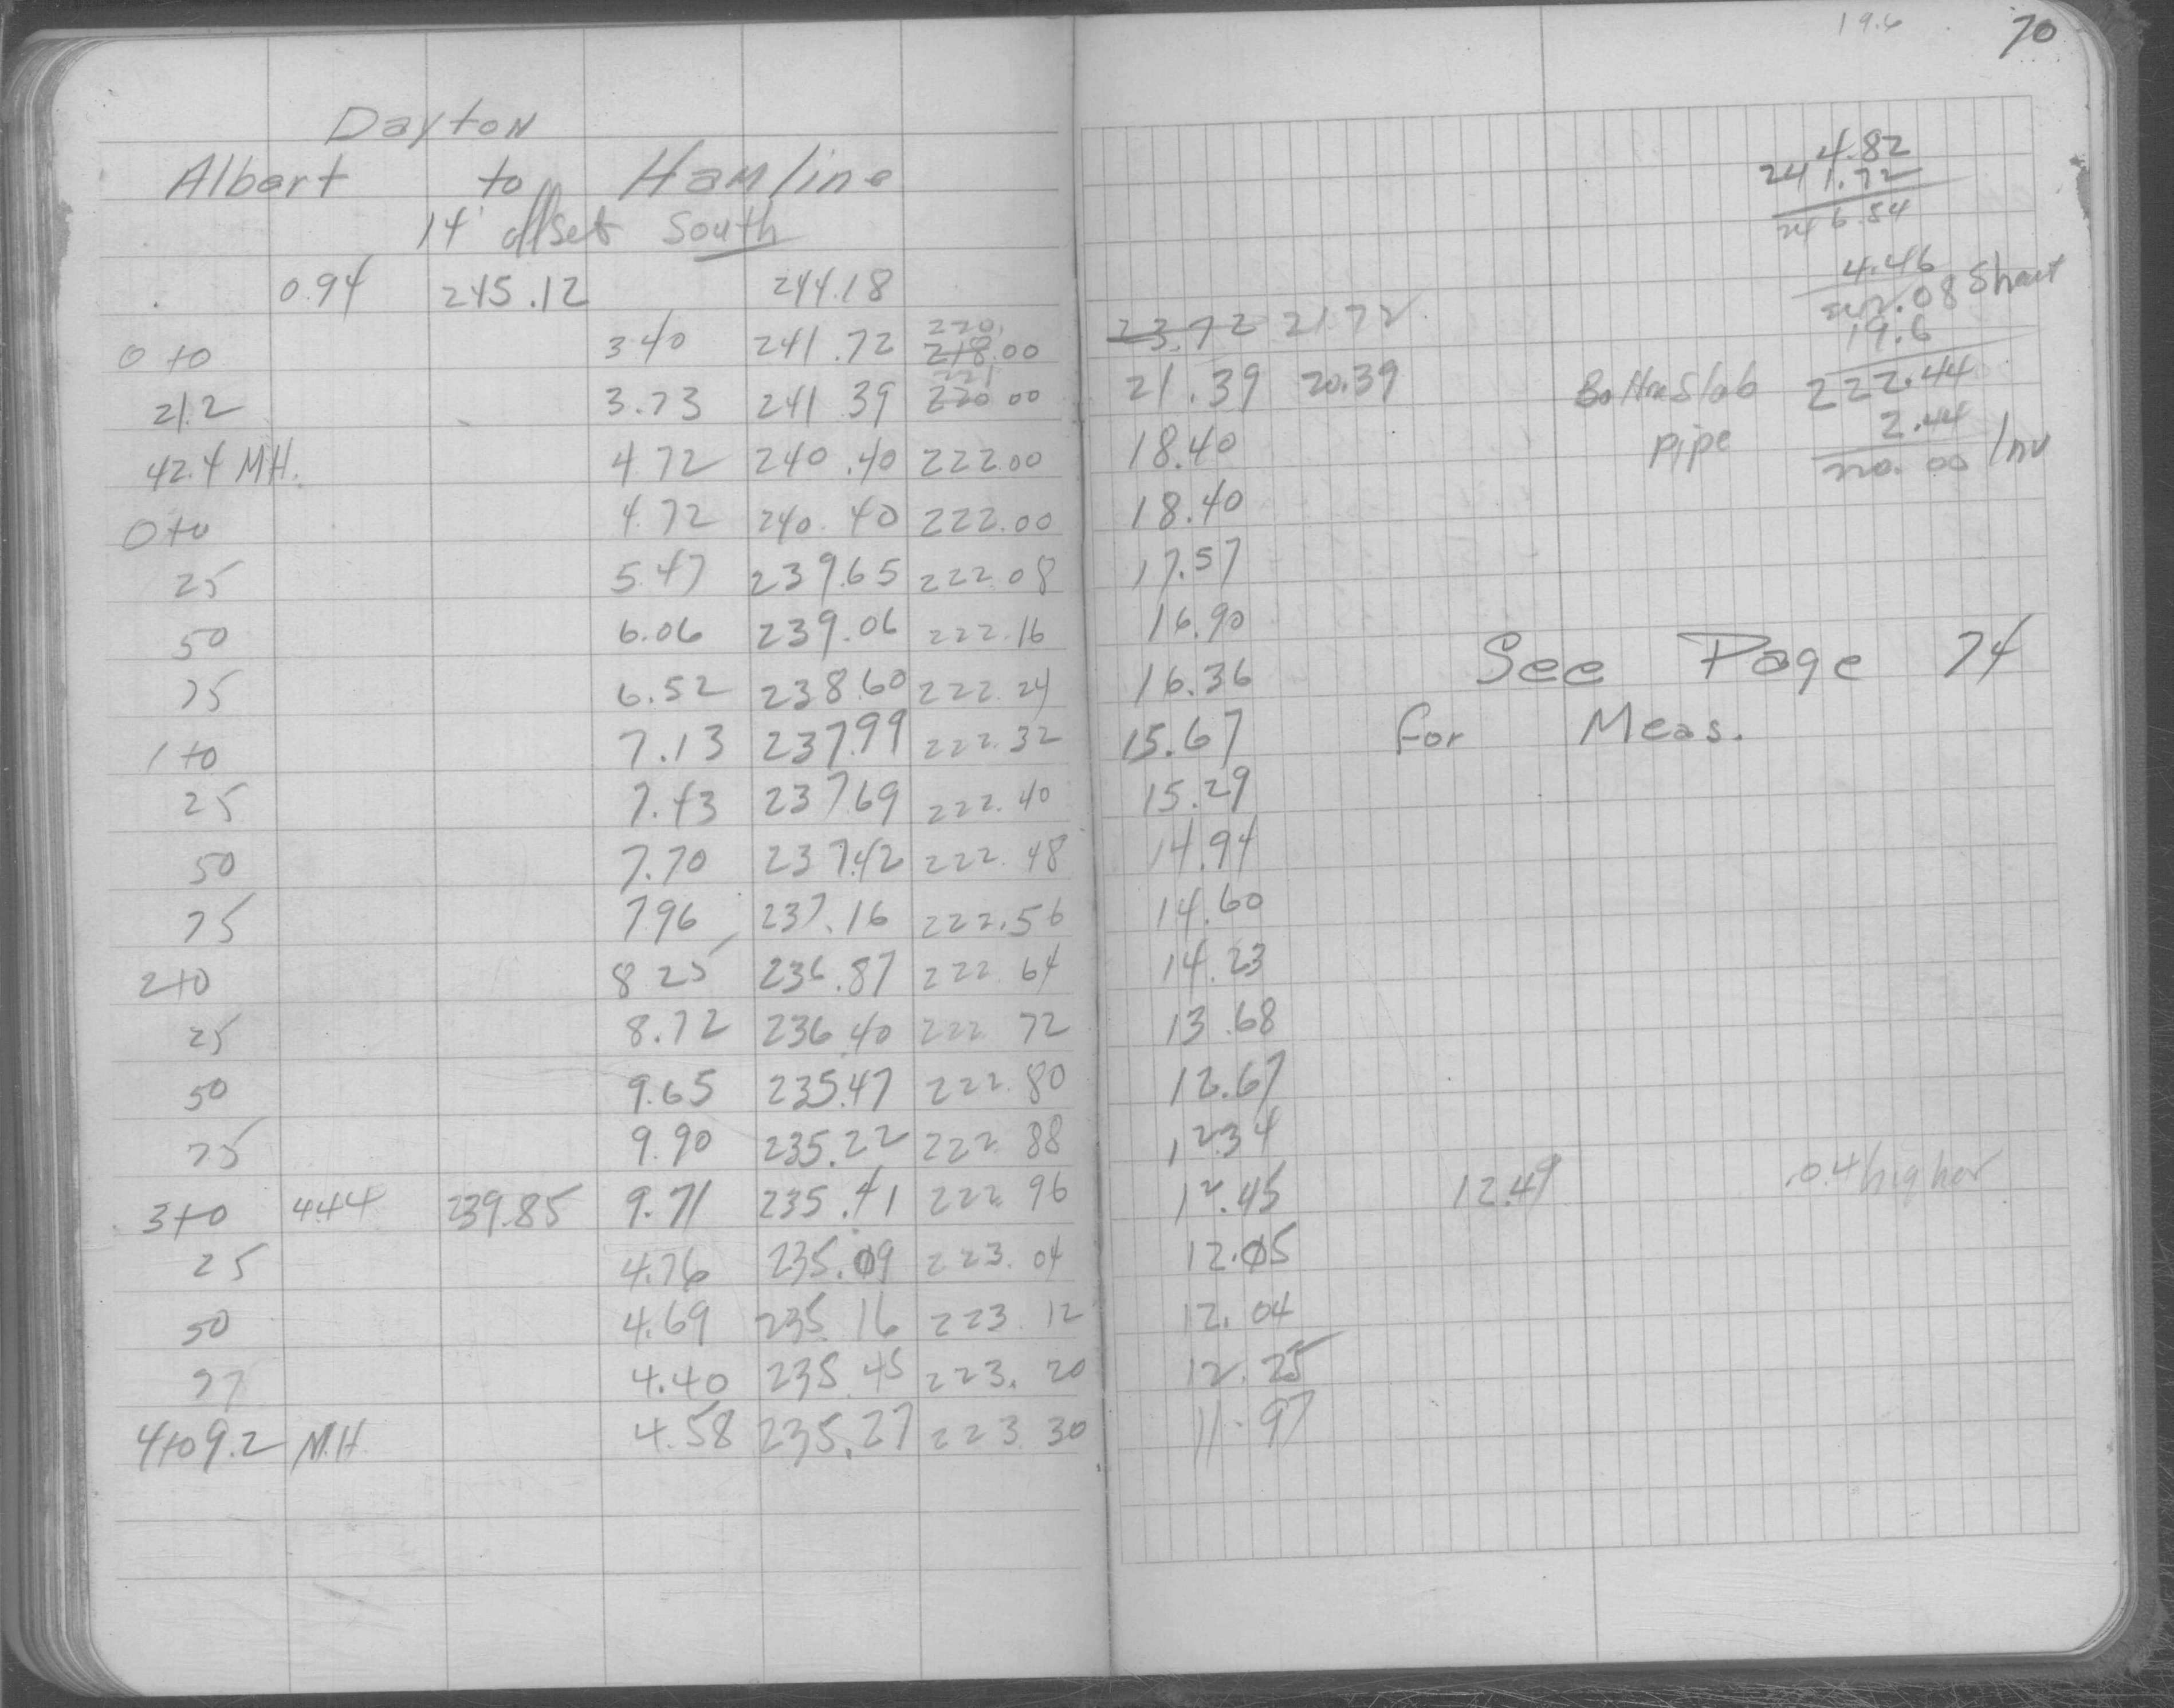 19.6 70
Dayton
Albert to Hamline
14' offset South
0.94 245.12 244.18
0+0 3.40 241.72 220. 218.00 23.72 21.72
21.2 3.73 241.39 221 220.00 21.39 20.39
42.4 MH. 4.72 240.40 222.00 18.40
0+0 4.72 240.40 222.00 18.40
25 5.47 239.65 222.08 17.57
50 6.06 239.06 222.16 16.90
75 6.52 238.60 222.24 16.36
1+0 7.13 237.99 222.32 15.67
25 7.43 237.69 222.40 15.29
50 7.70 237.42 222.48 14.94
75 7.96 237.16 222.56 14.60
2+0 8.25 236.87 222.64 14.23
25 8.72 236.40 222.72 13.68
50 9.65 235.47 222.80 12.67
75 9.90 235.22 222.88 12.34
3+0 4.44 239.85 9.71 235.41 222.96 12.45 12.49 .04 higher
25 4.76 235.09 223.04 12.05
50 4.69 235.16 223.12 12.04
4.40 235.45 223.20 12.25
4+09.2 M.H. 4.58 235.27 223.30 11.97
4.82
241.72
246.54
4.46
242.08
19.6
Slab 222.44
pipe 2.44
220.00 Inv
See Page 74
for Meas.